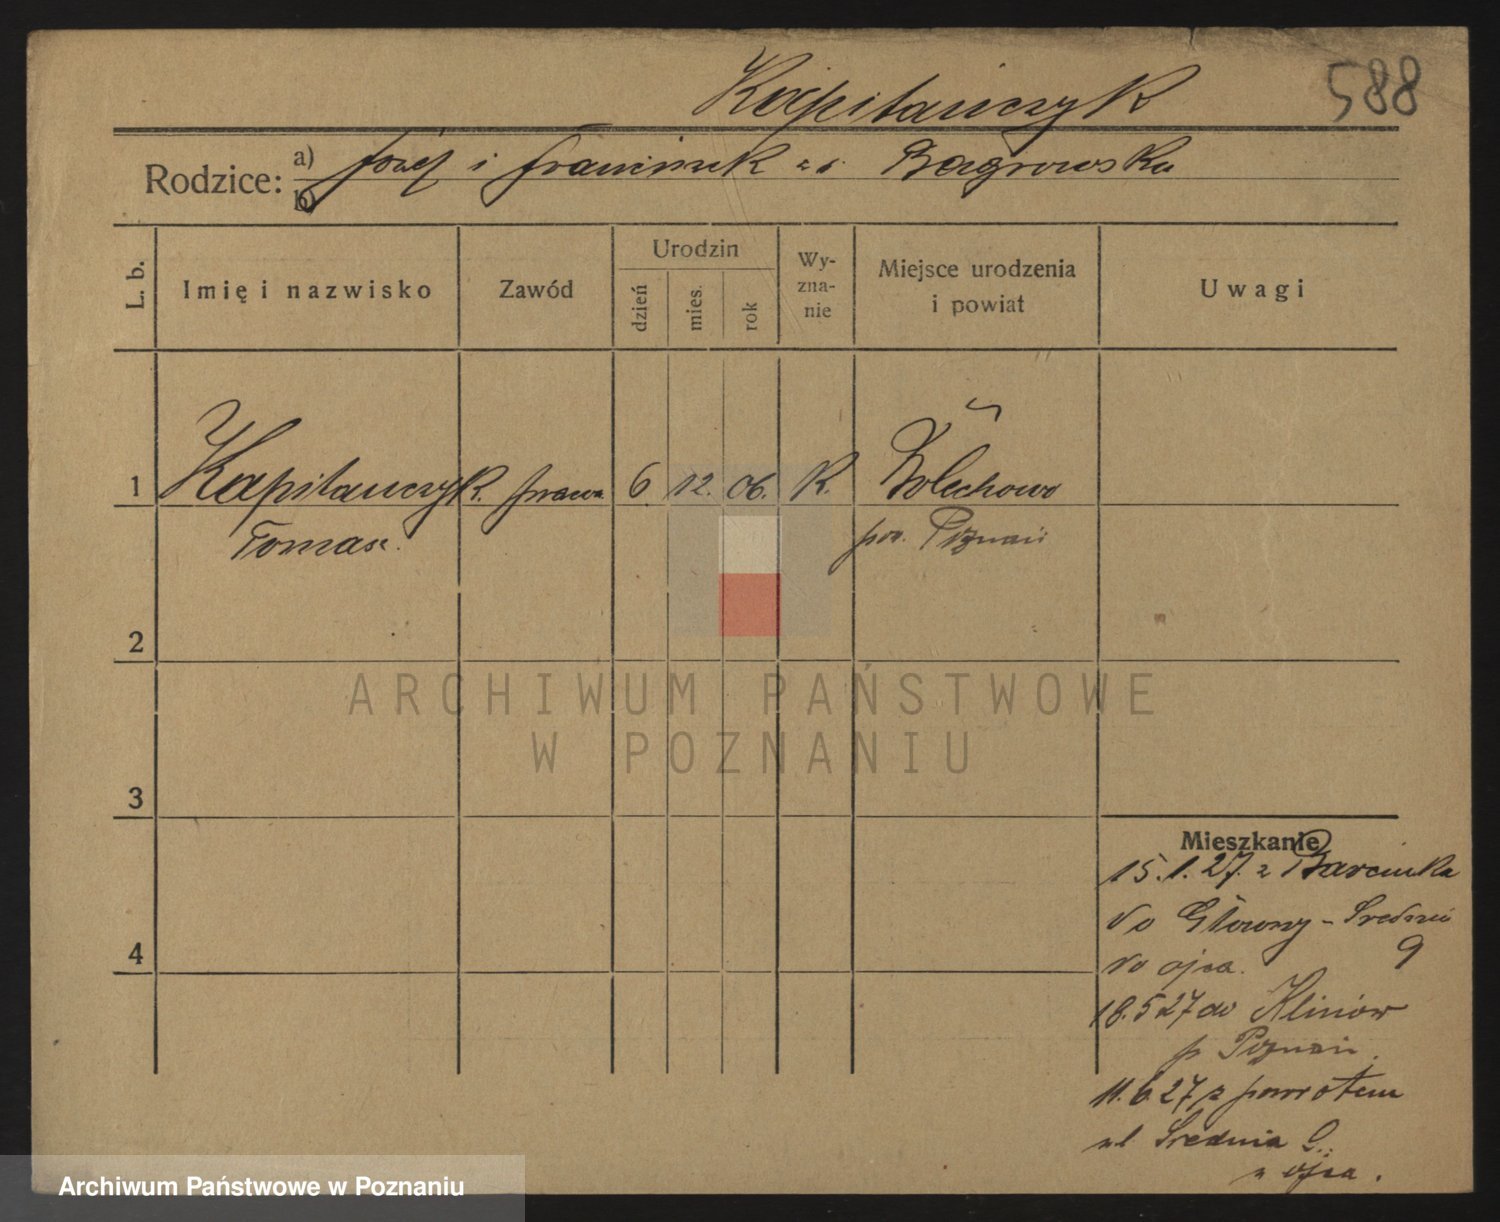 Kapitańczyk
588
Rodzice: a) Józef i Franciszk z d. Bagrowska
b)
L. b.
Imię i nazwisko
Zawód
Urodzin
dzień
mies.
rok
Wy-
zna-
nie
Miejsce urodzenia
i powiat
Uwagi
1 Kapitańczyk. 6 12. 06. K.
Tomasz. pow. Poznań
2
ARCHIWUM PAŃSTWOWE
W POZNANIU
3
4
Mieszkanie
15.1.27. z Barcinka
do Główny - Średnia
9
do ojca.
18.5 27 do Klinów
p Poznań.
11.6 27 z powrotem
ul Średnia 9.
u ojca.
Archiwum Państwowe w Poznaniu